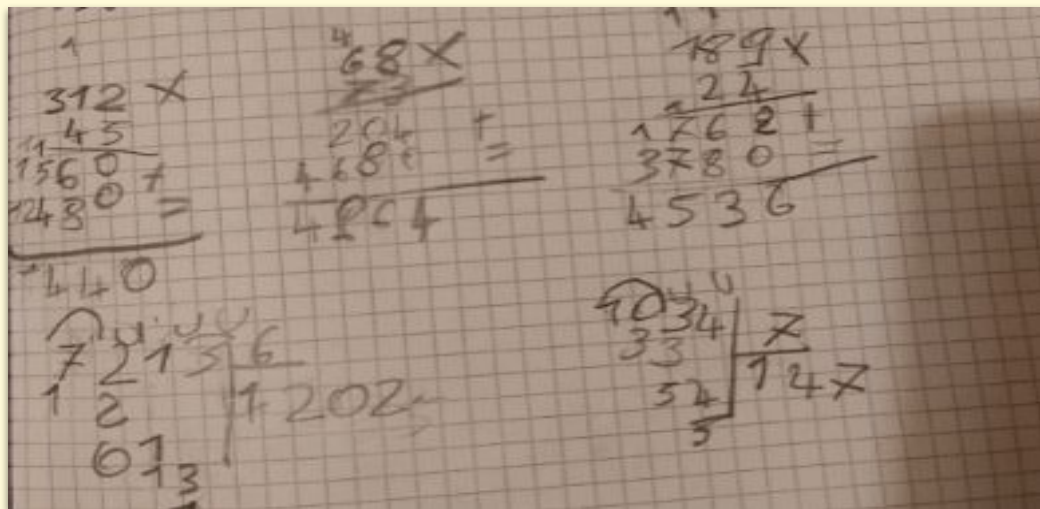 1
312 x
45
11
1560 +
12480 =
1440
4
68 x
204 +
468 =
4
11
189 x
24
1
762 +
3780 =
4536
7213 6
1 2 1202
01
13
1034 7
33 147
54
5